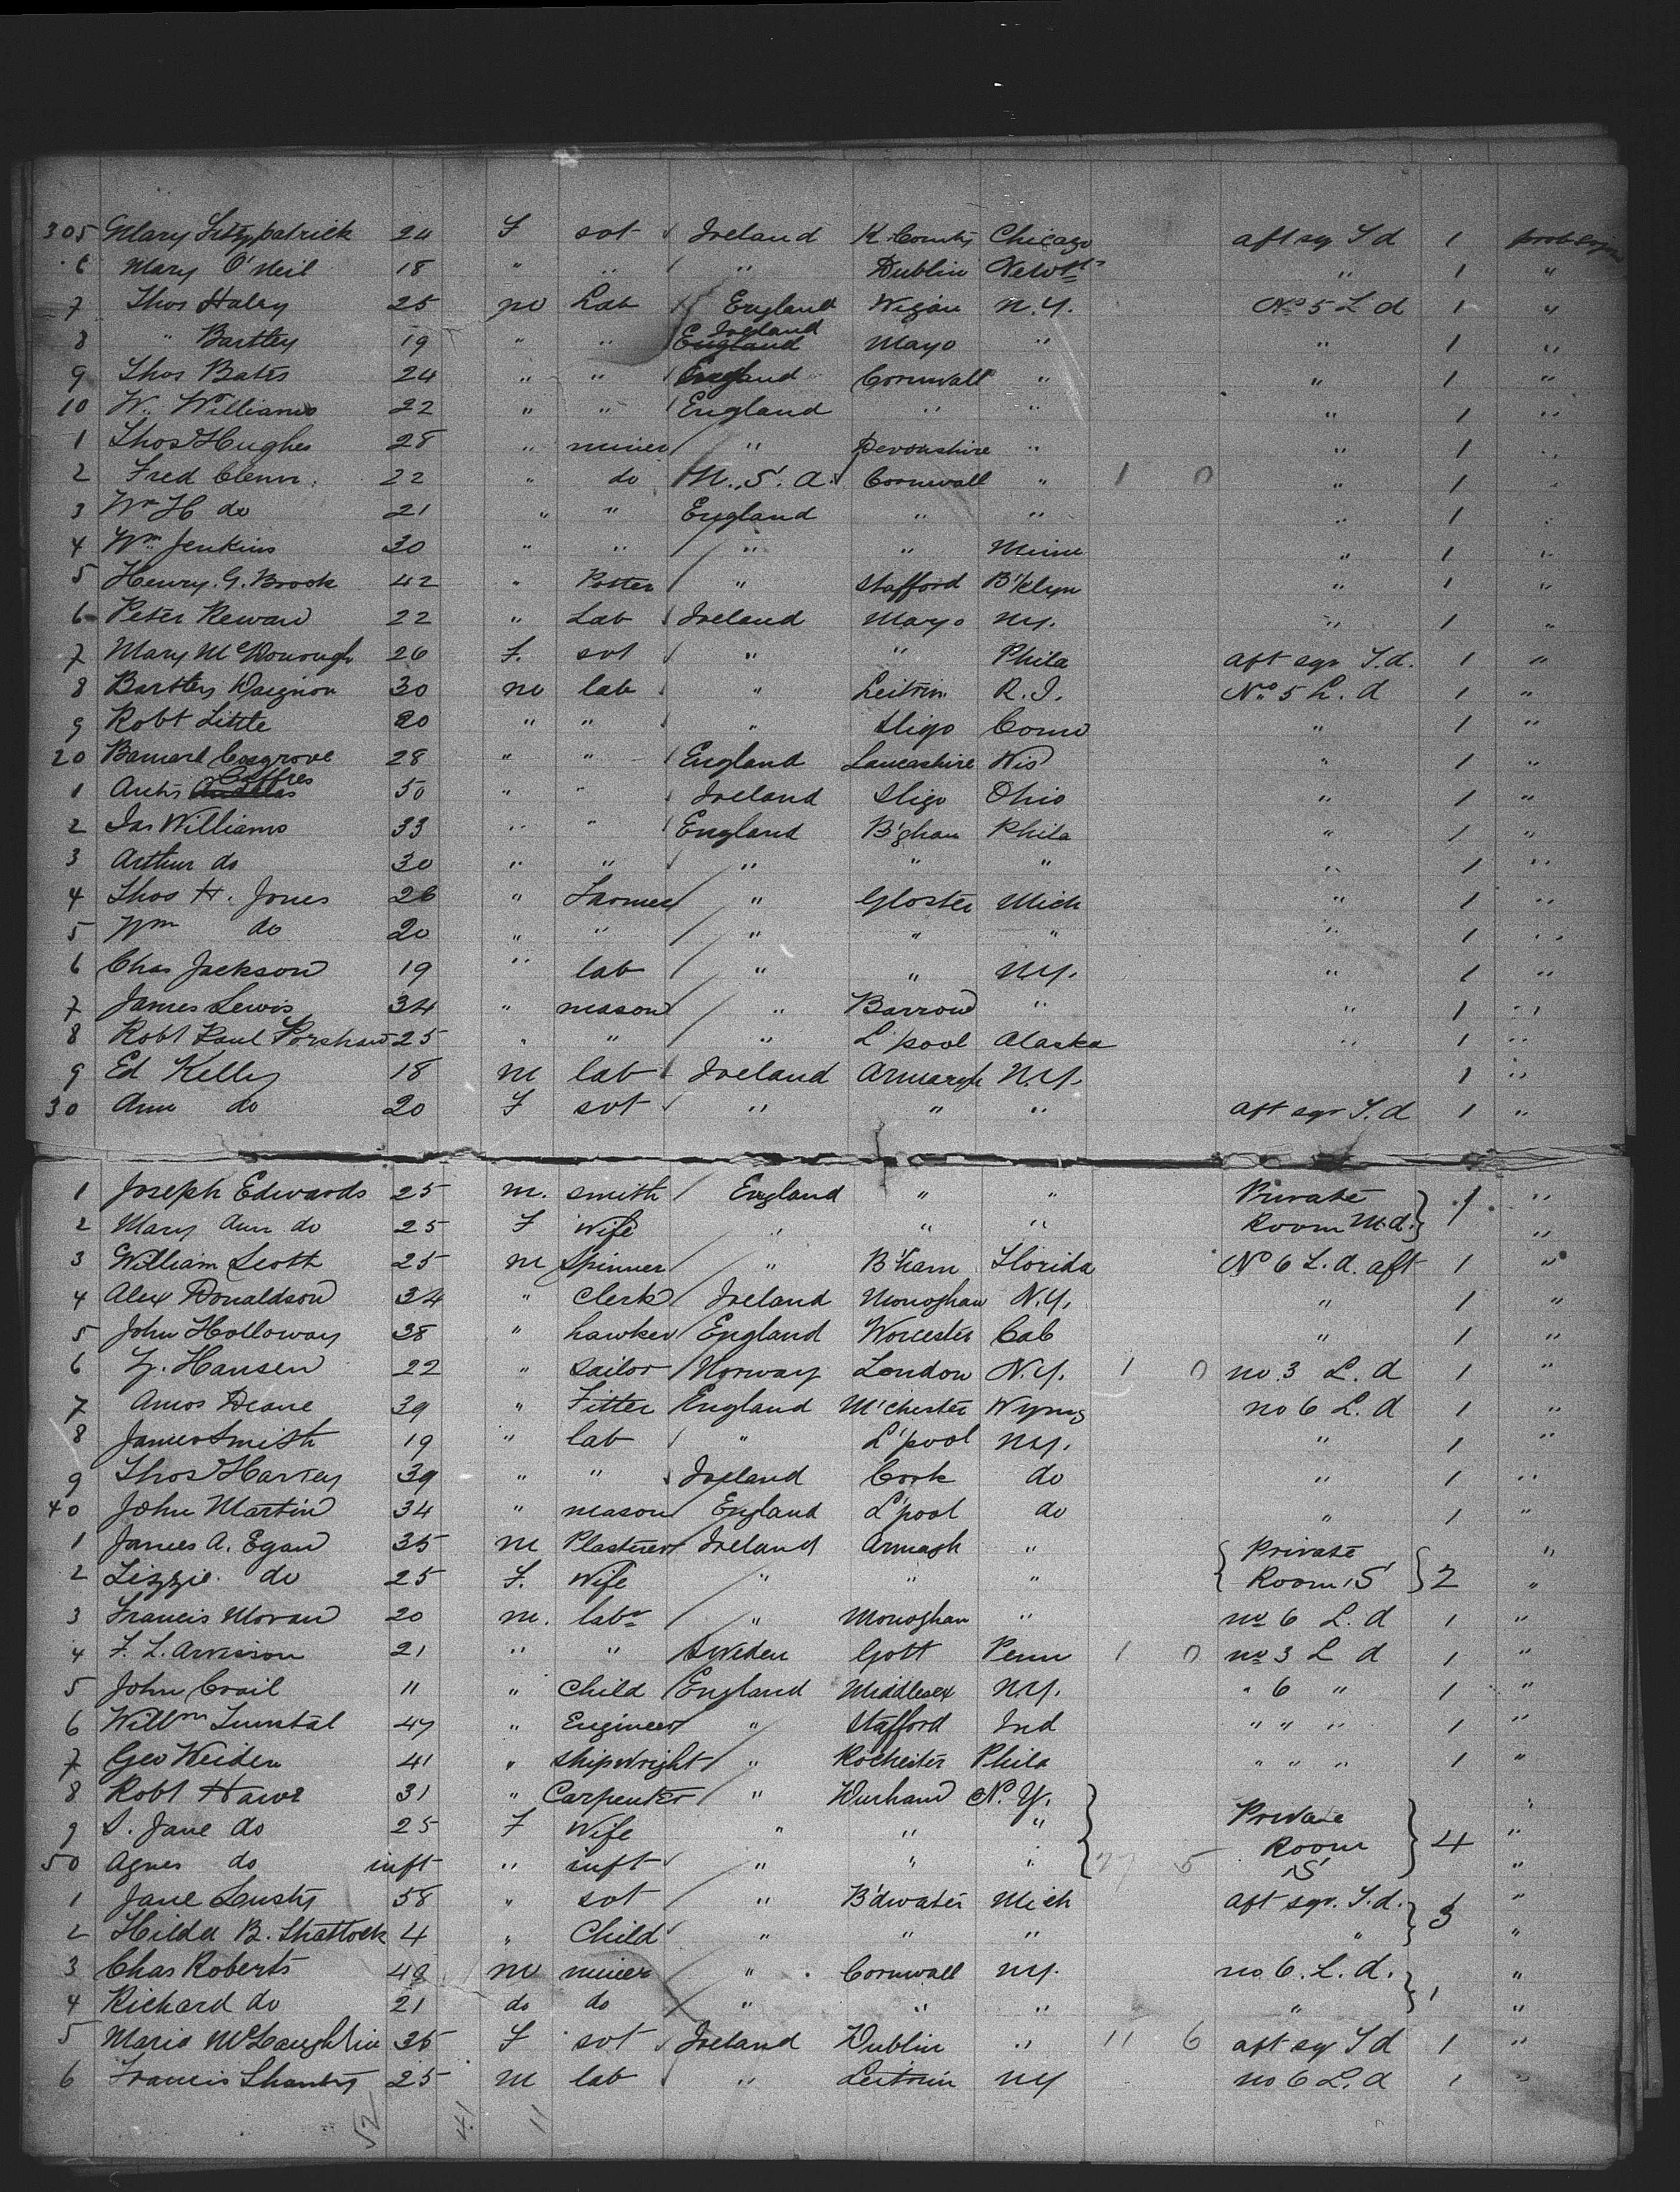 305 Mary Fitzpatrick 24 F svt Ireland K. County Chicago aft sq S d 1
6 Mary O'Neil 18 " " " Dublin " 1 "
7 Thos Haley 25 m Lab England Wigan N.Y. No 5 L d 1 "
8 " Bartley 19 " " Ireland England Mayo " " 1 "
9 Thos Bates 24 " " England Cornwall " " 1 "
10 W. Williams 22 " " England " " " 1 "
1 Thos Hughes 28 " miner " Devonshire " " 1 "
2 Fred Clenn 22 " do U.S.A. Cornwall " 1 0 " 1 "
3 Wm H do 21 " " England " " " 1 "
4 Wm Jenkins 30 " " " " Minn " 1 "
5 Henry. G. Brook 42 " Potter " Stafford B'klyn " 1 "
6 Peter Rewan 22 " Lab Ireland Mayo NY. " 1 "
7 Mary McDonough 26 F. svt " " Phila aft sqr S.d. 1 "
8 Bartley 30 m lab " Leitrim R.I. No 5 L. d 1 "
9 Robt Little 20 " " " Sligo Conn " 1 "
20 Barnard Cosgrove 28 " " England Lancashire Wis " 1 "
1 50 " " Ireland Sligo Ohio " 1 "
2 Jas Williams 33 " " England B'gham Phila " 1 "
3 Arthur do 30 " " " " " " 1 "
4 Thos H. Jones 26 " Farmer " Gloster Mich " 1 "
5 Wm do 20 " " " " " " 1 "
6 Chas Jackson 19 " lab " " NY. " 1 "
7 James Lewis 34 " mason " Barrow " " 1 "
8 Robt Paul 25 " " " L'pool Alaska " 1 "
9 Ed Kelly 18 m lab Ireland Armargh N.Y. 1 "
30 Ann do 20 F svt " " " aft sqr S.d 1 "
1 Joseph Edwards 25 m. smith England " " Private } 1 "
2 Mary Ann do 25 F Wife " " " Room M.d. } "
3 William Scott 25 m Spinner " B'ham Florida No 6 L.d. aft 1 "
4 Alex Donaldson 34 " Clerk Ireland Monoghan N.Y. " 1 "
5 John Holloway 38 " hawker England Worcester Cal " 1 "
6 Hansen 22 " Sailor Norway London N.Y. 1 0 no 3 L. d 1 "
7 Amos Deane 39 " Fitter England M'chester Wyng no 6 L. d 1 "
8 James Smith 19 " lab " L'pool NY. " 1 "
9 Thos Harvey 39 " " Ireland Cork do " 1 "
40 John Martin 34 " mason England L'pool do " 1 "
1 James A. Egan 35 m Plasterer Ireland Armagh " { Private } 2 "
2 Lizzie do 25 F. Wife " " " { Room S } "
3 Francis Moran 20 m. labr " Monoghan " no 6 L. d 1 "
4 F. L. Arvisson 21 " " Sweden Gott Penn 1 0 no 3 L d 1 "
5 John Crail 11 " Child England Middlesex N.Y. " 6 " 1 "
6 Willm Tunstal 47 " Engineer " Stafford Ind " " " 1 "
7 Geo Weiden 41 " Shipwright " Rochester Phila " " " 1 "
8 Robt 31 " Carpenter " Durham N. Y. } "
9 S. Jane do 25 F Wife " " " Private } 4 "
50 Agnes do inft " inft " " " 5 Room S "
1 Jane Lusty 58 " svt " B'dwater Mich aft sqr. S.d. } 3 "
2 Hilda B. Shattock 4 " Child " " " " } "
3 Chas Roberts 48 m miner " Cornwall NY. no 6. L. d. } 1 "
4 Richard do 21 do do " " " " "
5 Maria McLaughlin 36 F svt Ireland Dublin " 11 6 aft sq S d 1 "
6 Francis 25 m lab " Leitrim NY no 6 L. d 1 "
52 41 11